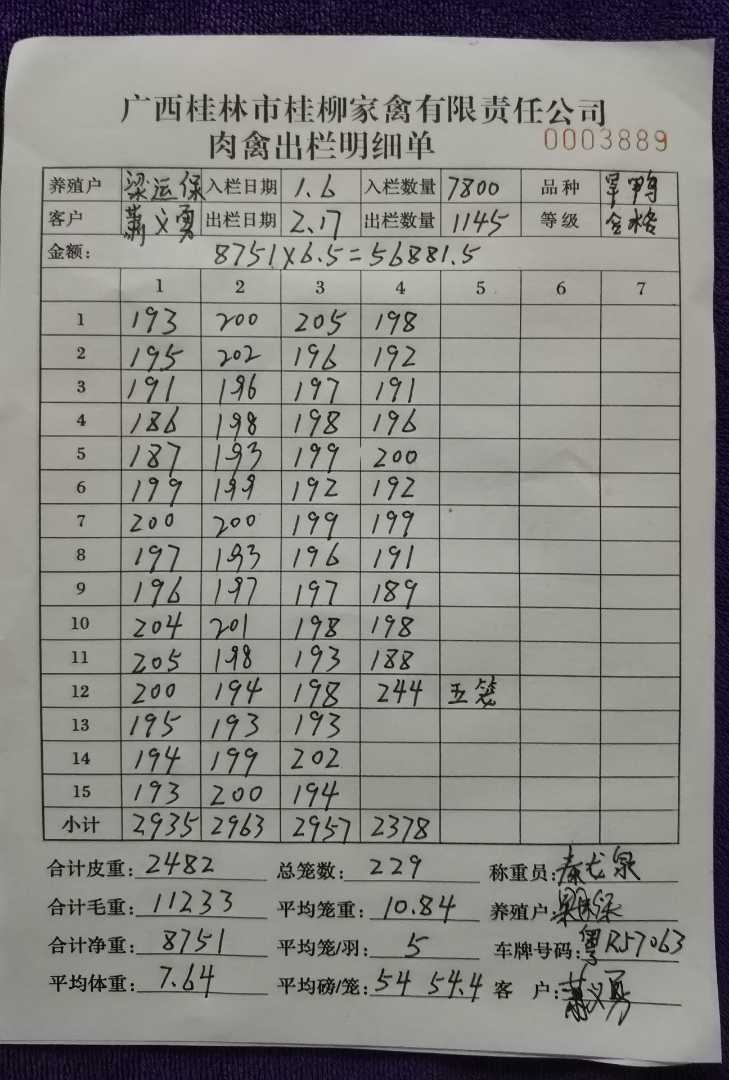 广西桂林市桂柳家禽有限责任公司
肉禽出栏明细单 0003889
养殖户 梁运保 入栏日期 1.6 入栏数量 7800 品种 旱鸭
客户 萧义勇 出栏日期 2.17 出栏数量 1145 等级 合格
金额: 8751×6.5=56881.5
1 2 3 4 5 6 7
1 193 200 205 198
2 195 202 196 192
3 191 196 197 191
4 186 198 198 196
5 187 193 199 200
6 199 199 192 192
7 200 200 199 199
8 197 193 196 191
9 196 197 197 189
10 204 201 198 198
11 205 198 193 188
12 200 194 198 244 五笼
13 195 193 193
14 194 199 202
15 193 200 194
小计 2935 2963 2957 2378
合计皮重: 2482 总笼数: 229 称重员: 秦龙泉
合计毛重: 11233 平均笼重: 10.84 养殖户:
合计净重: 8751 平均笼/羽: 5 车牌号码: 粤R57063
平均体重: 7.64 平均磅/笼: 54 54.4 客 户: 萧义勇